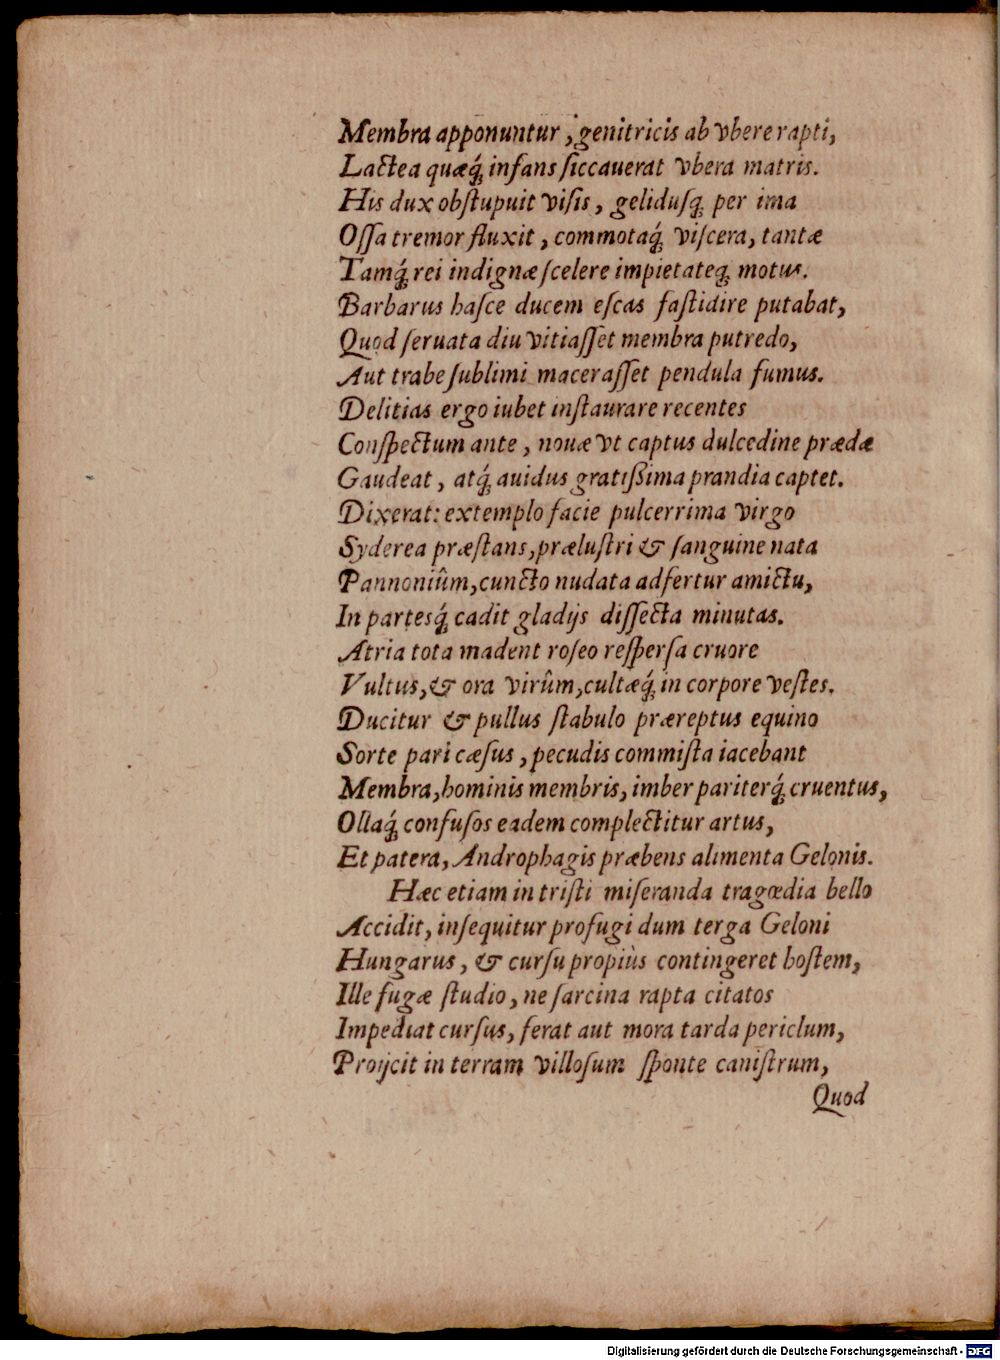 Membra apponuntur, genitricis ab vbere rapti,
Lactea quæq́; infans ſiccauerat vbera matris.
His dux obſtupuit viſis, geliduſq; per ima
Oſſa tremor fluxit, commotaq́; viſcera, tantæ
Tamq́; rei indignæ ſcelere impietateq; motus.
Barbarus haſce ducem eſcas faſtidire putabat,
Quod ſeruata diu vitiaſſet membra putredo,
Aut trabe ſublimi maceraſſet pendula fumus.
Delitias ergo iubet inſtaurare recentes
Conſpectum ante, nouæ vt captus dulcedine prædæ
Gaudeat, atq́; auidus gratiſsima prandia captet.
Dixerat: extemplo facie pulcerrima virgo
Syderea præſtans, præluſtri & ſanguine nata
Pannoniûm, cuncto nudata adfertur amictu,
In partesq́; cadit gladijs diſſecta minutas.
Atria tota madent roſeo reſperſa cruore
Vultus, & ora virûm, cultæq́; in corpore veſtes.
Ducitur & pullus ſtabulo præreptus equino
Sorte pari cæſus, pecudis commiſta iacebant
Membra, hominis membris, imber pariterq́; cruentus,
Ollaq́; confuſos eadem complectitur artus,
Et patera, Androphagis præbens alimenta Gelonis.
Hæc etiam in triſti miſeranda tragœdia bello
Accidit, inſequitur profugi dum terga Geloni
Hungarus, & curſu propiùs contingeret hoſtem,
Ille fugæ ſtudio, ne ſarcina rapta citatos
Impediat curſus, ferat aut mora tarda periclum,
Proijcit in terram villoſum ſponte caniſtrum,
Quod
Digitalisierung gefördert durch die Deutsche Forschungsgemeinschaft - DFG